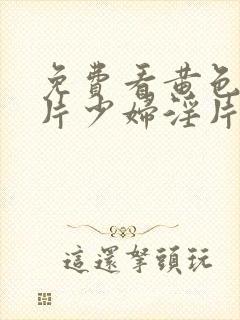 免費看黄色
片少婦淫片
這還拏頭玩